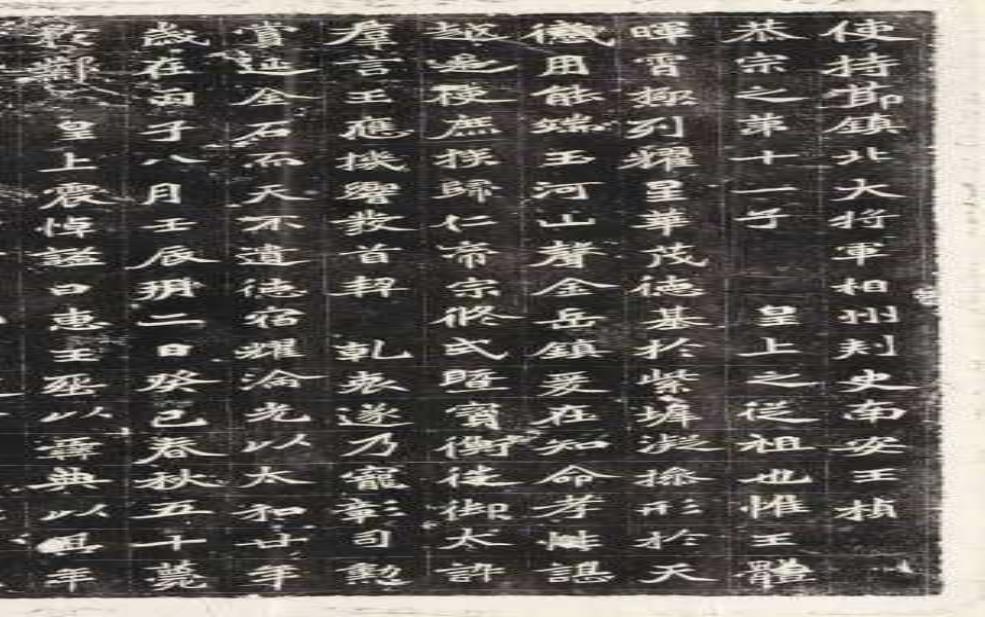 使持節鎮北大將軍相州刺史南安王楨
恭宗之第十一子　皇上之從祖也惟王體
暉霄極列耀星華茂德基於紫墀凝操形於天
儀用能端玉河山聲金岳鎮爰在知命孝性諶
越是使庶族歸仁帝宗攸式暨寶衡徙御太訊
羣言王應機響發首契　乾衷遂乃寵彰司勳
賞延金石而天不遺德宿耀淪光以太和廿年
歲在丙子八月壬辰朔二日癸巳春秋五十薨
於鄴　皇上震悼諡曰惠王葬以彝典以其年